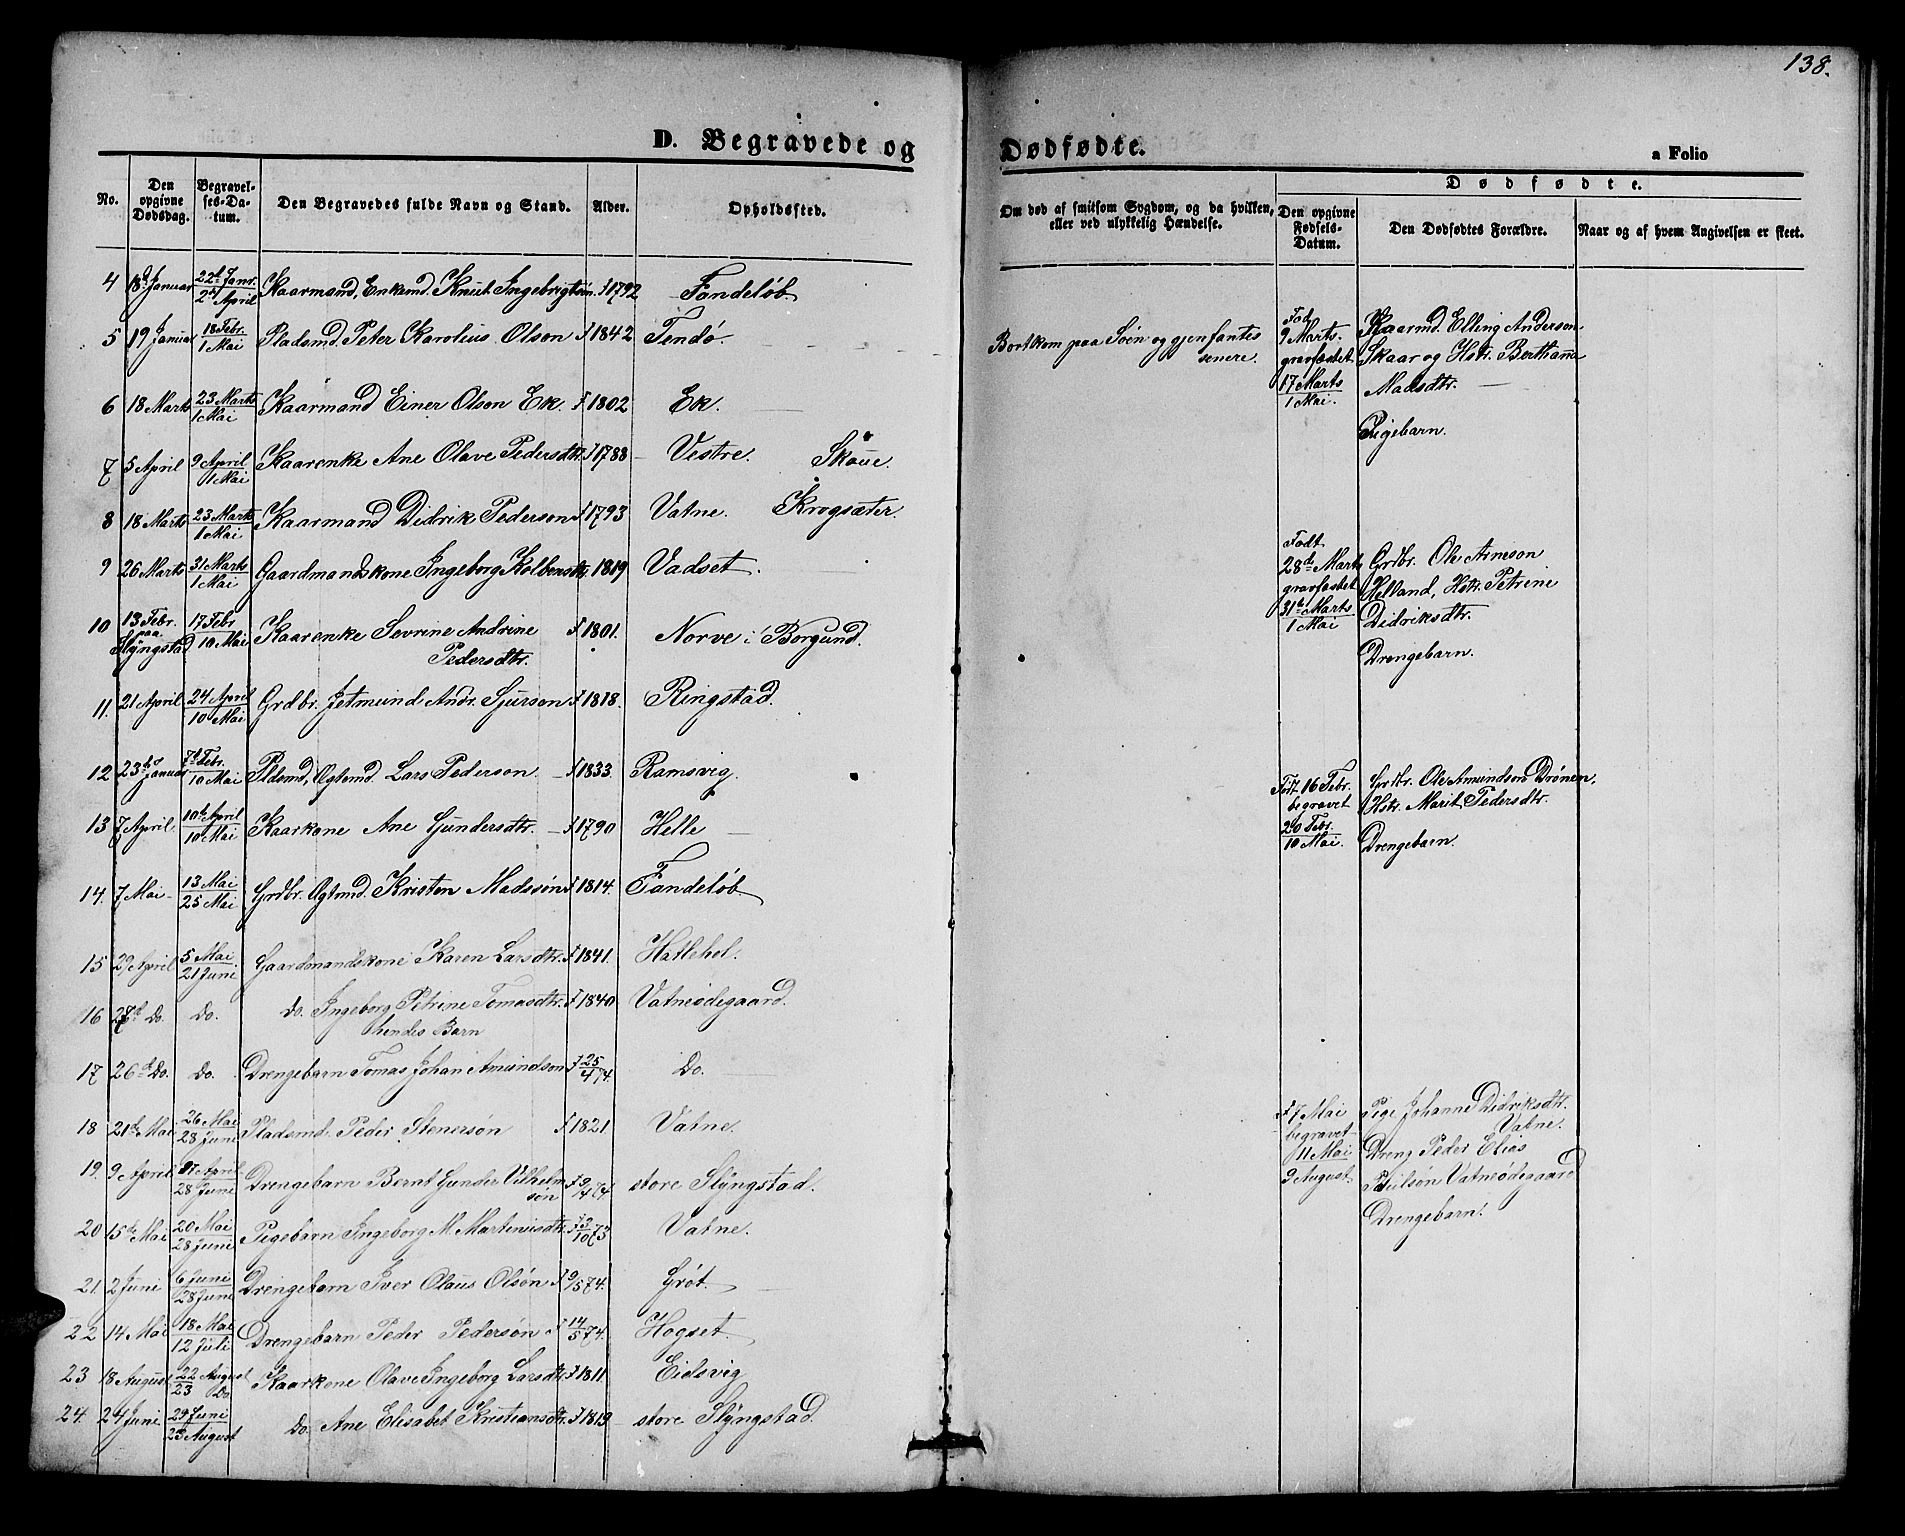 138.
D. Begravede og Dødfødte. a Folio
No. Den opgivne Dødsdag. Begravelses-Datum. Den Begravedes fulde Navn og Stand. Alder. Opholdssted.
Om død af smitsom Sygdom, og da hvilken, eller ved ulykkelig Hændelse. Dødfødte. Den opgivne Fødsels-Datum. Den Dødfødtes Forældre. Naar og af hvem Angivelsen er skeet.
4 18d Januar 22d Janr. 2d April Kaarmand, Enkemd. Knut Ingebrigtsøn f 1792 Fandeløb
5 19 Januar 18 Febr. 1 Mai Pladsmd. Peter Karolius Olson f 1842 Tendø. Bortkom paa Søen og gjenfantes senere.
6 18 Marts 23 Marts 1 Mai Kaarmand Einer Olson Ek. f 1802 Ek.
7 5 April 9 April 1 Mai Kaarenke Ane Olave Pedersdtr. f 1788 Vestre Skoue.
8 18 Marts 23 Marts 1 Mai Kaarmand Didrik Pederson f 1793 Vatne. Krogsæter.
9 26 Marts 31 Marts 1 Mai Gaardmandskone Ingeborg Kolbensdtr. 1819 Vadset.
10 13 Febr. paa Slyngstad 17 Febr 10 Mai Kaarenke Sevrine Andrine Pedersdtr. f 1801. Norve i Borgund.
11. 21 April 24 April 10 Mai Grdbr. Jetmund Andr. Sjurson f 1818. Ringstad.
12 23de Januar 7d Febr. 10 Mai Pldsmd, Ogtemd. Lars Pederson. f 1833. Ramsvig.
13 7 April. 10de April 10 Mai Kaarkone Ane Gundersdtr. f 1790 Helle
14. 7 Mai 13 Mai 25 Mai Grdbr. Ogtemd. Kristen Madssøn f 1814. Fandeløb
15 29 April 5 Mai 21 Juni Gaardmandskone Karen Larsdtr. f 1841. Hatlehol.
16 27d Do. Do. Do. Ingeborg Petrine Tomasdtr. f 1840 Vatneødegaard.
hendes Barn
17 26d Do. Do. Drengebarn Tomas Johan Amundson f 25/4 74. Do.
18 21d Mai 26 Mai 28 Juni Pladsmd. Peder Stenersøn f 1821 Vatne.
19. 9 April April 28 Juni Drengebarn Bernt Gunder Vilhelmsøn f 9/4 74. store Slyngstad.
20 15de Mai 20 Mai 28 Juni Pigebarn Ingeborg M. Martinusdtr. f 3/10 73 Vatne.
21. 2 Juni 6 Juni 28 Juni Drengebarn Iver Olaus Olsøn f 9/5 74. Grøt
22 14 Mai 18 Mai 12 Juli Drengebarn Peder Pedersøn f 14/5 74. Hogset
23 18 August 22 August 23 Do Kaarkone Olave Ingeborg Larsdtr. f 1811. Eidsvig
24. 24 Juni 29 Juni 23 August Do. Ane Elisabet Kristiansdtr. f 1819 store Slyngstad.
Fød 9 Marts. gravfæstet 17 Marts 1 Mai.
Kaarmd. Elling Anderson
Skaar og Hstr. Berthanne
Madsdtr.
Pigebarn.
Født 28de Marts gravfæstet 31d Marts 1 Mai
Grdbr. Ole Arneson
Helland, Hstr. Petrine
Didriksdtr.
Drengebarn.
Født 16 Febr. begravet 20 Febr. 10 Mai.
Grdbr. Ole Amundson Drønen.
Hstr. Marit Pedersdtr.
Drengebarn.
f 7 Mai begravet 11 Mai 9 August
Pige Johanne Didriksdtr.
Vatne.
Dreng Peder Elias
Vatneødegaard
Drengebarn!